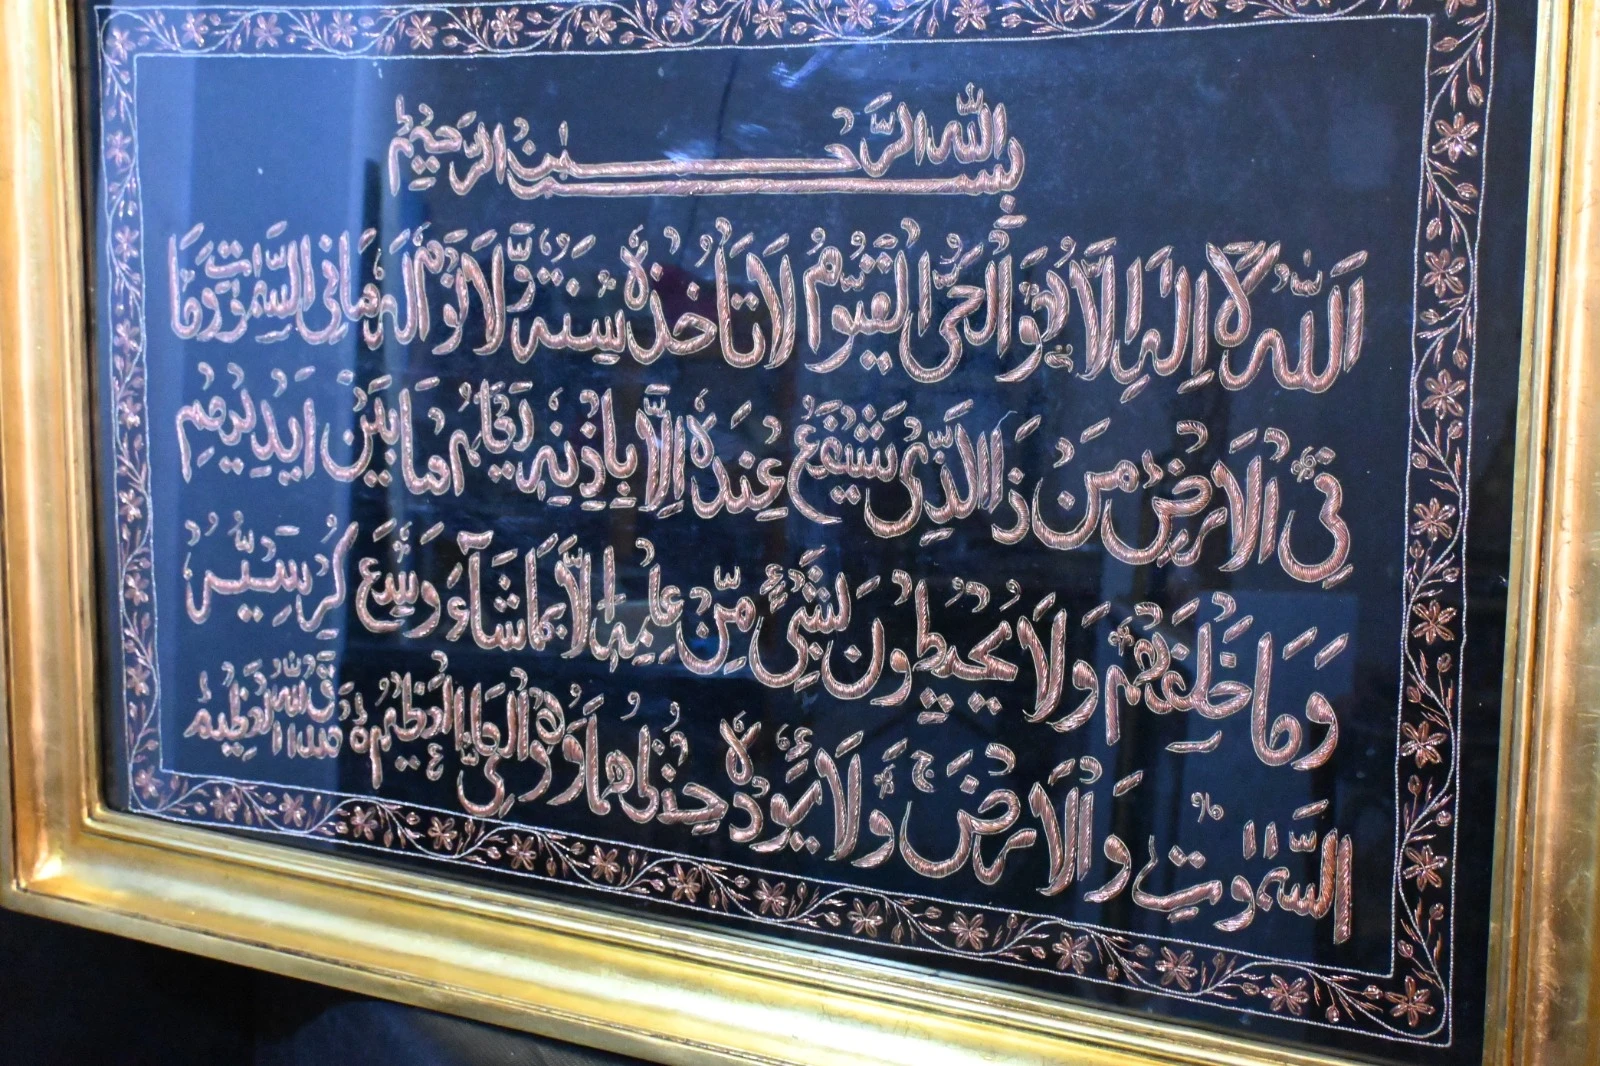 بسم الله الرحمن الرحيم
الله لا إله إلا هو الحي القيوم لا تأخذه سنة ولا نوم له ما في السموت وما
في الأرض من ذا الذي يشفع عنده إلا بإذنه يعلم ما بين أيديهم
وما خلفهم ولا يحيطون بشيء من علمه إلا بما شاء وسع كرسيه
السموت والأرض ولا يؤده حفظهما وهو العلي العظيم صدق الله العظيم